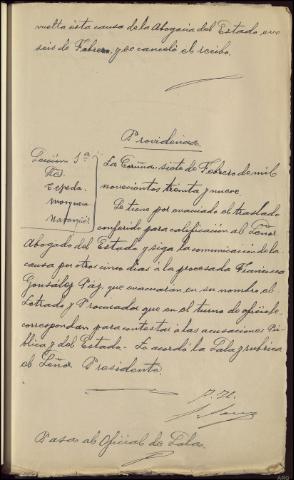 vuelta esta causa de la Abogacia del Estado, en
seis de Febrero, y se canceló el recibo.
Providencia
Sección 1ª
Tejeda
La Coruña siete de Febrero de mil
novecientos treinta y nueve
Se tiene por evacuado el traslado
conferido para calificación al Señor
Abogado del Estado y siga la comunicación de la
causa por otros cinco dias a la procesada Francisca
González Paz, que evacuaran en su nombre el
Letrado y Procurador que en el turno de oficio le
correspondan para contestar a las acusaciones Pú
blica y del Estado.- Lo acordó la Sala y rubrica
el Señor Presidente.
Pasa al Oficial de Sala